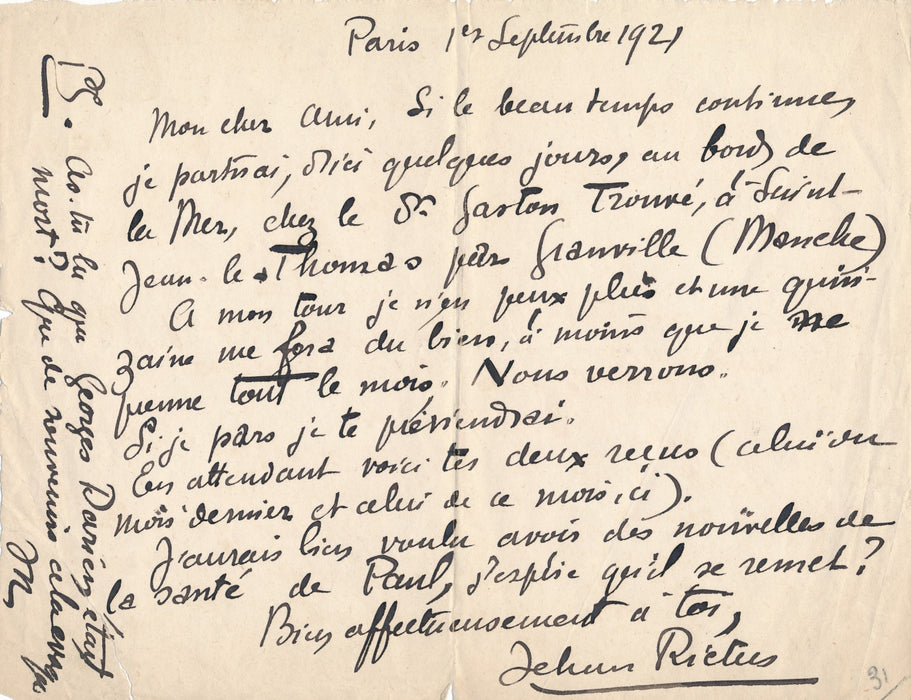 Paris 1er Septembre 1921
Mon cher Ami, Si le beau temps continue,
je partirai, d'ici quelques jours, au bord de
la Mer, chez le Dr Gaston Trouvé, à Saint-
Jean-le-Thomas par Granville (Manche)
A mon tour je n'en peux plus et une quin-
zaine me fera du bien, à moins que je ne
prenne tout le mois. Nous verrons.
Si je pars je te préviendrai.
En attendant voici tes deux reçus (celui du
mois dernier et celui de ce mois ici).
J'aurais bien voulu avoir des nouvelles de
la santé de Paul, j'espère qu'il se remet?
Bien affectueusement à toi,
Jehan Rictus
PS. As-tu lu que Georges Darien était
mort? Que de souvenirs
31